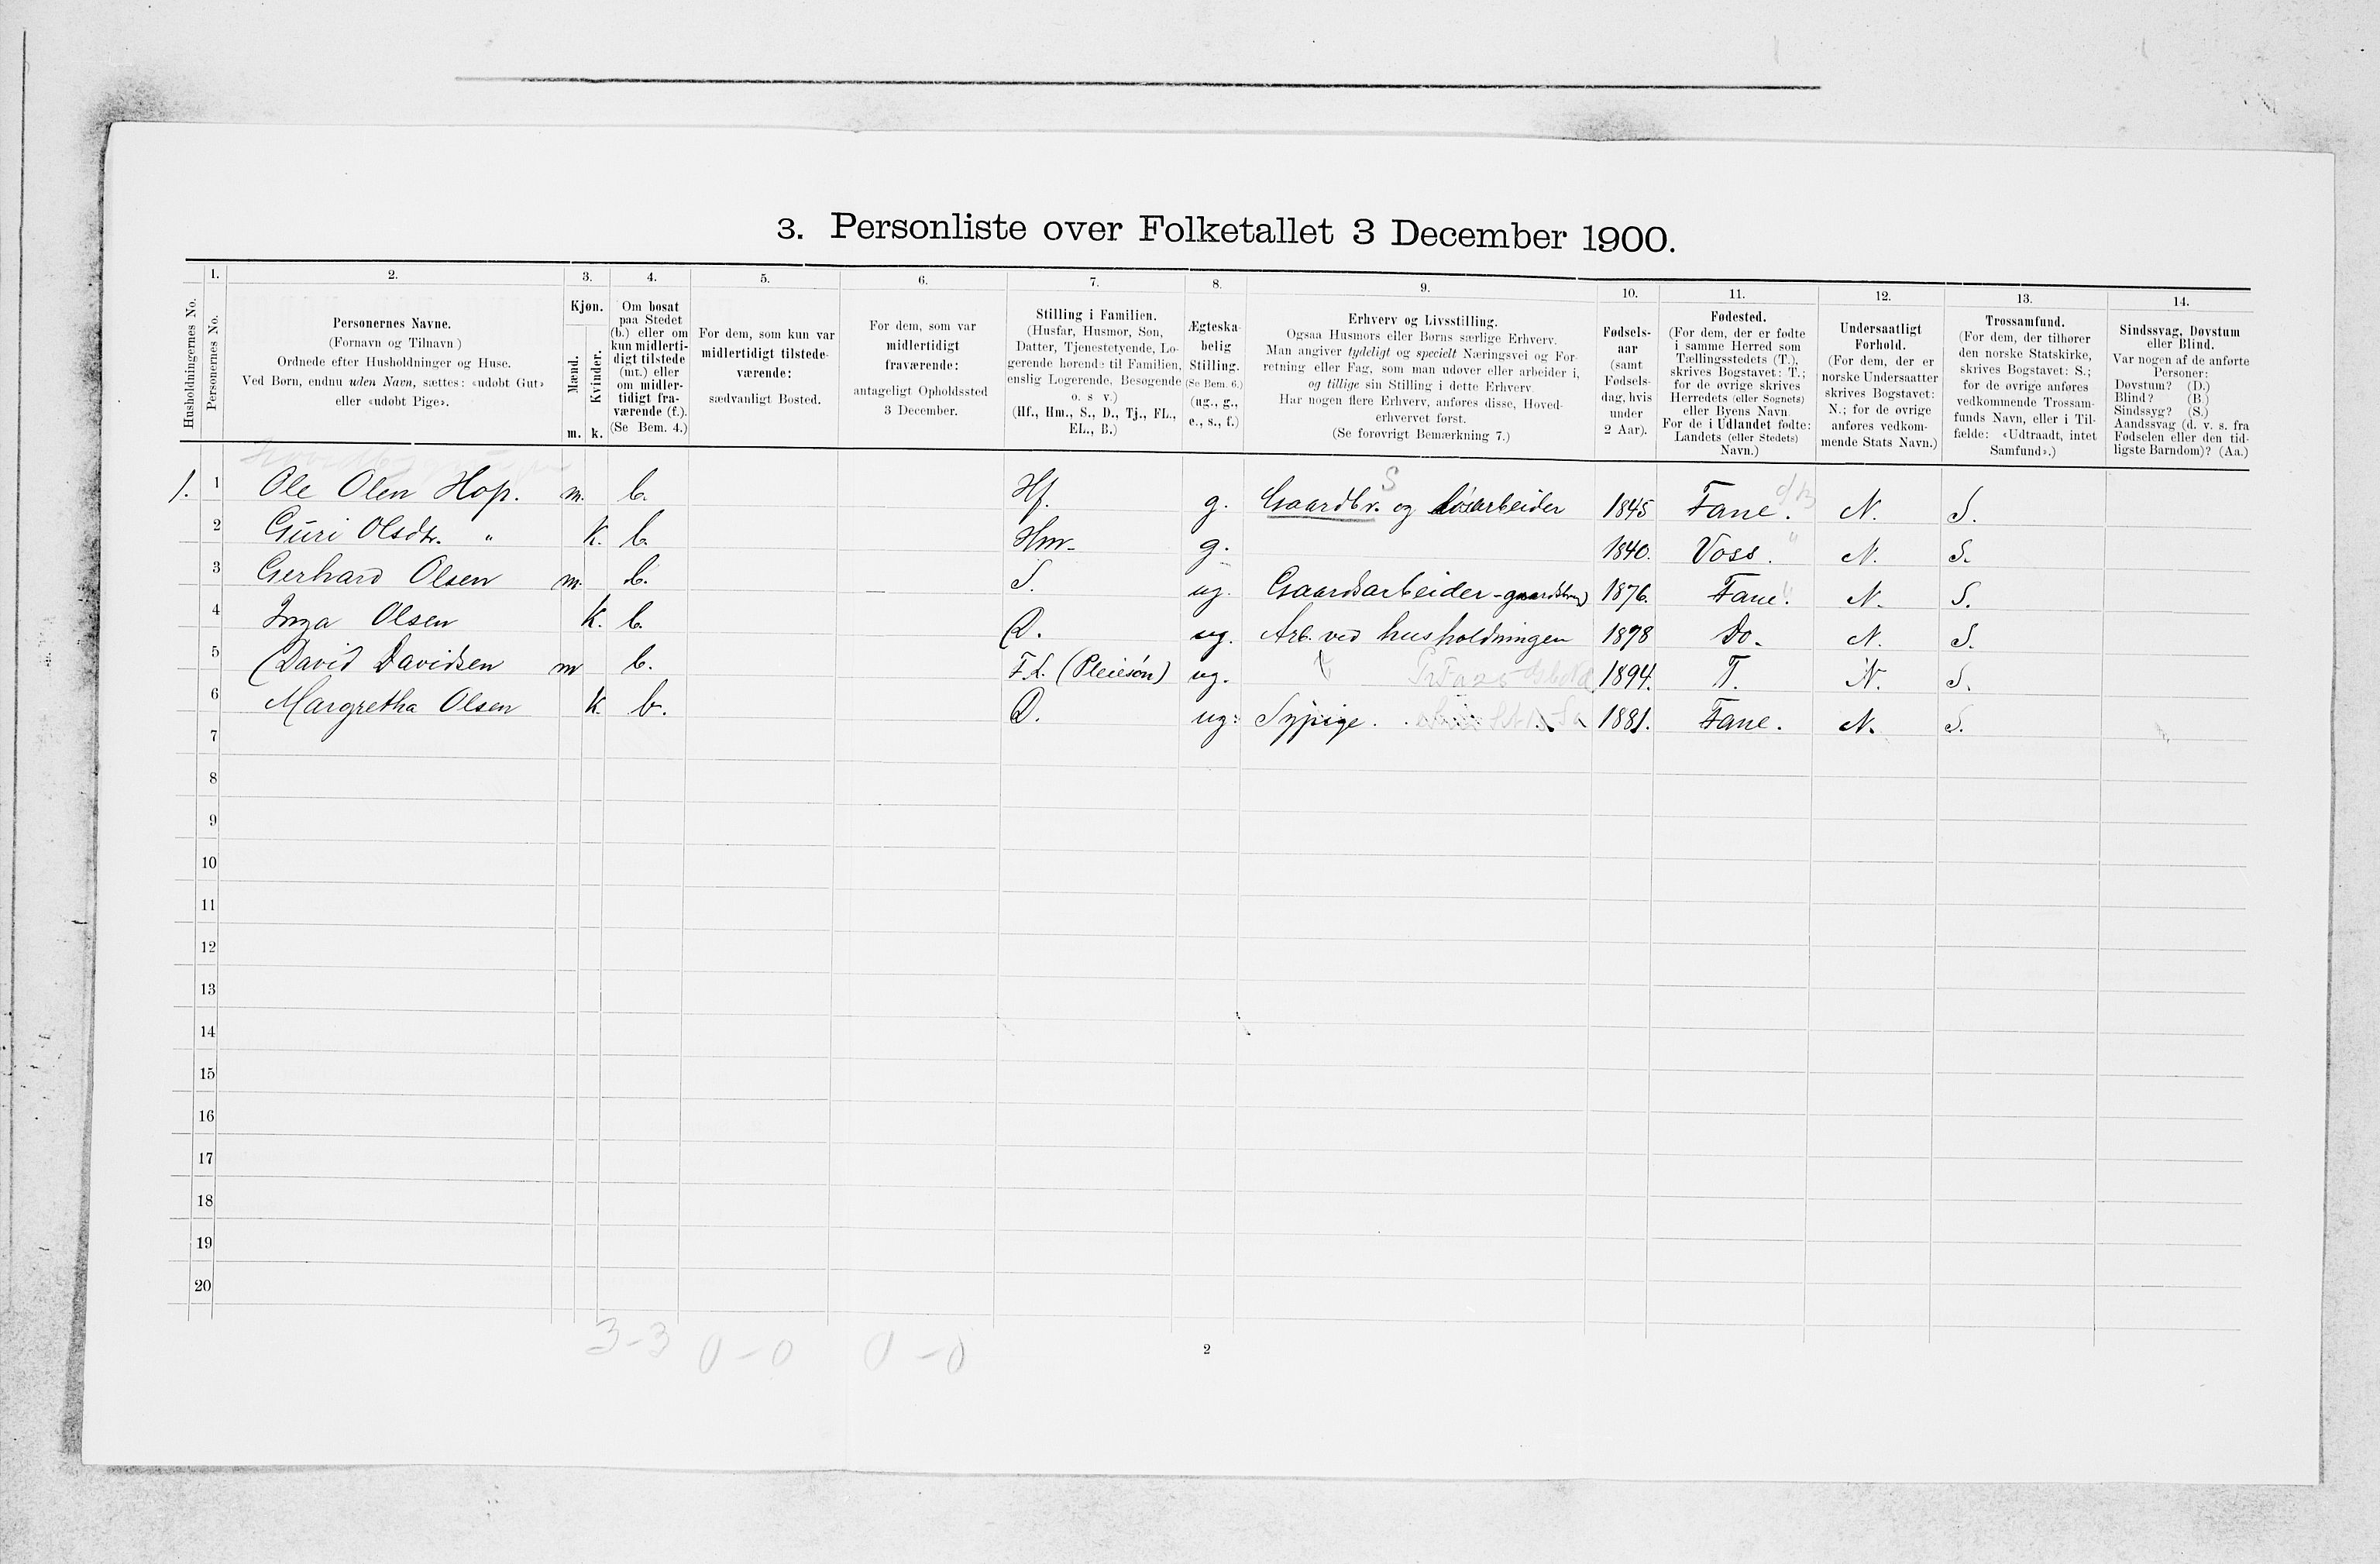 3. Personliste over Folketallet 3 December 1900.
Husholdningernes No.
1.
Personernes No.
2.
Personernes Navne.
(Fornavn og Tilnavn)
Ordnede efter Husholdninger og Huse.
Ved Børn, endnu uden Navn, sættes: «udøbt Gut»
eller «udøbt Pige».
3.
Kjøn.
Mænd.
Kvinder.
m. k.
4.
Om bosat
paa Stedet
(b.) eller om
kun midlerti-
digt tilstede
(mt.) eller
om midler-
tidigt fra-
værende (f.).
(Se Bem. 4.)
5.
For dem, som kun var
midlertidigt tilstede-
værende:
sædvanligt Bosted.
6.
For dem, som var
midlertidigt
fraværende:
antageligt Opholdssted
3 December.
7.
Stilling i Familien.
(Husfar, Husmor, Søn,
Datter, Tjenestetyende, Lo-
gerende hørende til Familien,
enslig Logerende, Besøgende
o. s. v.)
(Hf., Hm., S., D., Tj., FL.,
EL., B.)
8.
Ægteska-
belig
Stilling.
(Se Bem. 6.)
(ug., g.,
e., s., f.)
9.
Erhverv og Livsstilling.
Ogsaa Husmors eller Børns særlige Erhverv.
Man angiver tydeligt og specielt Næringsvei og For-
retning eller Fag, som man udøver eller arbeider i,
og tillige sin Stilling i dette Erhverv.
Har nogen flere Erhverv, anføres disse, Hoved-
erhvervet først.
(Se forøvrigt Bemærkning 7.)
10.
Fødsels-
aar
(samt
Fødsels-
dag, hvis
under
2 Aar).
11.
Fødested.
(For dem, der er fødte
i samme Herred som
Tællingsstedets (T.),
skrives Bogstavet: T.;
for de øvrige skrives
Herredets (eller Sognets)
eller Byens Navn.
For de i Udlandet fødte:
Landets (eller Stedets)
Navn.)
12.
Undersaatligt
Forhold.
(For dem, der er
norske Undersaatter
skrives Bogstavet:
N.; for de øvrige
anføres vedkom-
mende Stats Navn.)
13.
Trossamfund.
(For dem, der tilhører
den norske Statskirke,
skrives Bogstavet: S.;
for de øvrige anføres
vedkommende Trossam-
funds Navn, eller i Til-
fælde: «Udtraadt, intet
Samfund».)
14.
Sindssvag, Døvstum
eller Blind.
Var nogen af de anførte
Personer:
Døvstum? (D.)
Blind? (B.)
Sindssyg? (S.)
Aandssvag (d. v. s. fra
Fødselen eller den tid-
ligste Barndom)? (Aa.)
1. 1 Ole Olen Hop. m. b. Hf. g. Gaardbr. og løsarbeider 1845 Fane. N. S.
2 Guri Olsdtr. " K. b. Hm. g. 1840. Voss. N. S.
3 Gerhard Olsen m. b. S. ug. Gaardsarbeider 1876. Fane. N. S.
4 Inga Olsen K. b. D. ug. Arb. ved husholdningen 1878 Do. N. S.
5 David Davidsen m b. F.L. (Pleiesøn) ug. 1894. T. N. S.
6 Margretha Olsen K. b. D. ug: Sypige. 1881. Fane. N. S.
7
8
9
10
11
12
13
14
15
16
17
18
19
20
3-3 0-0 0-0
2